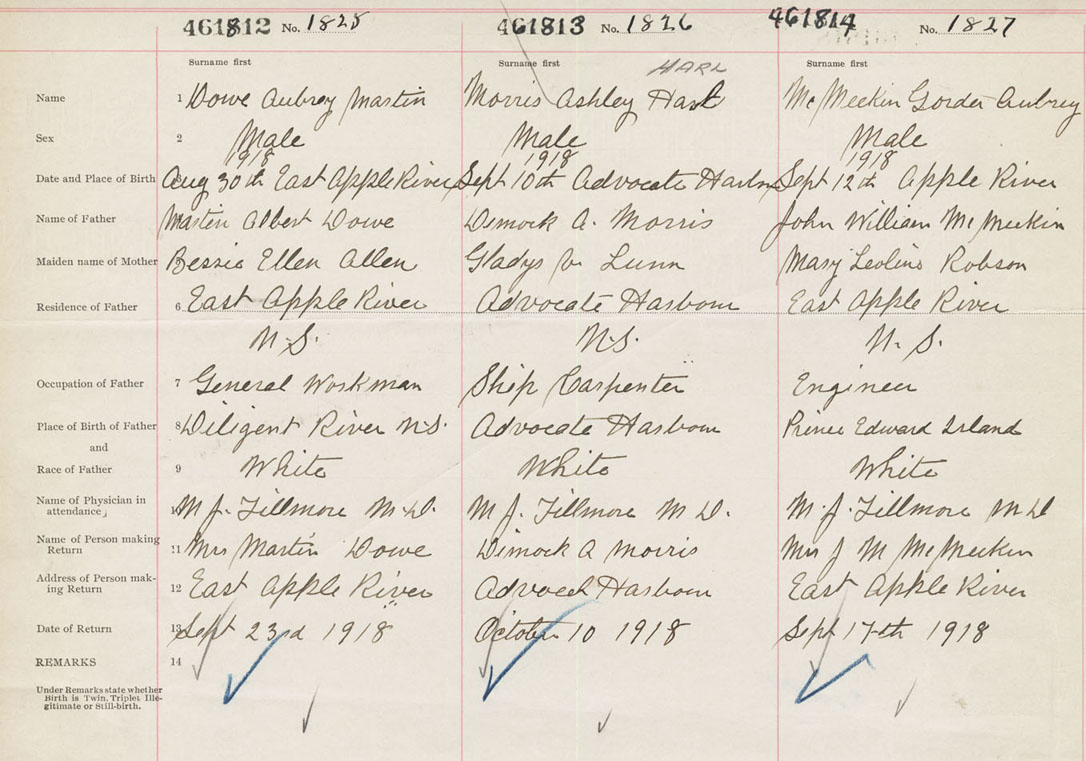 461812 No. 1825 461813 No. 1826 461814 No. 1827
Surname first Surname first Surname first
HARL
Name 1 Dowe Aubrey Martin Morris Ashley Harl McMeekin Gorder Aubrey
Sex 2 Male Male Male
1918 1918 1918
Date and Place of Birth Aug 30th East Apple River Sept 10th Advocate Harbour Sept 12th Apple River
Name of Father Martin Albert Dowe Dimock A. Morris John William McMeekin
Maiden name of Mother Bessie Ellen Allen Gladys V Lunn Mary Leoline Robson
Residence of Father 6 East Apple River Advocate Harbour East Apple River
N.S. N.S. N.S.
Occupation of Father 7 General Workman Ship Carpenter Engineer
Place of Birth of Father 8 Diligent River N.S. Advocate Harbour Prince Edward Island
and
Race of Father 9 White White White
Name of Physician in
attendance, 10 M. J. Fillmore M.D. M J. Fillmore M D. M. J. Fillmore M D
Name of Person making
Return 11 Mrs Martin Dowe Dimock A Morris Mrs J M McMeekin
Address of Person mak-
ing Return 12 East Apple River Advocate Harbour East Apple River
Date of Return 13 Sept 23rd 1918 October 10 1918 Sept 17th 1918
REMARKS 14
Under Remarks state whether
Birth is Twin, Triplet Ille-
gitimate or Still-birth.